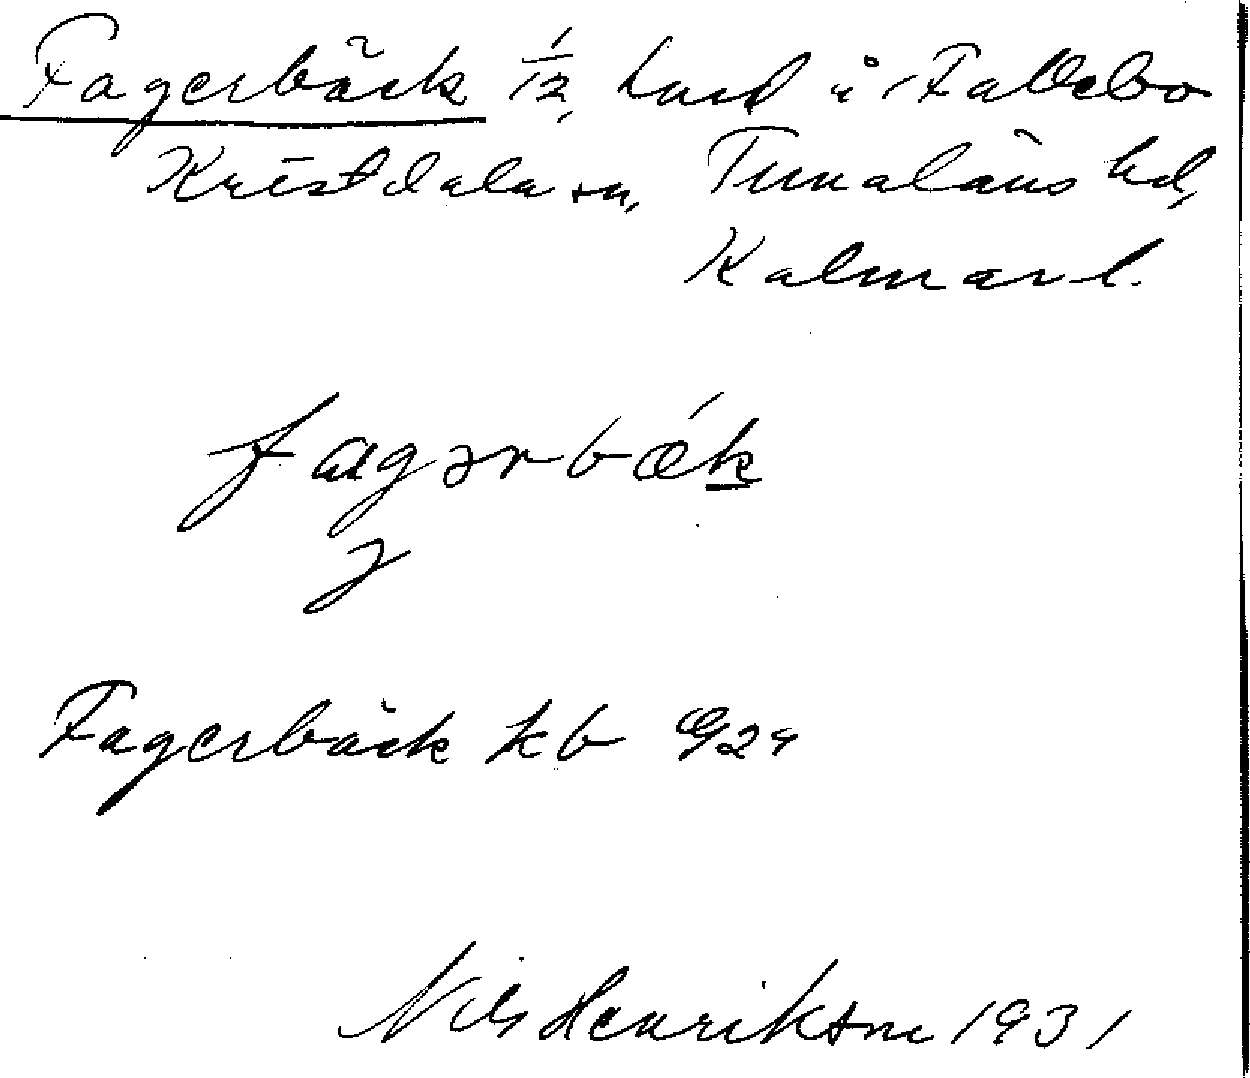 Fagerbäck 1/12, hmd i Fallebo
Kristdala sn, Tunaläns hd,
Kalmar l.
fagərbǽk
Fagerbäck kb 1924
Nils Henriksson 1931